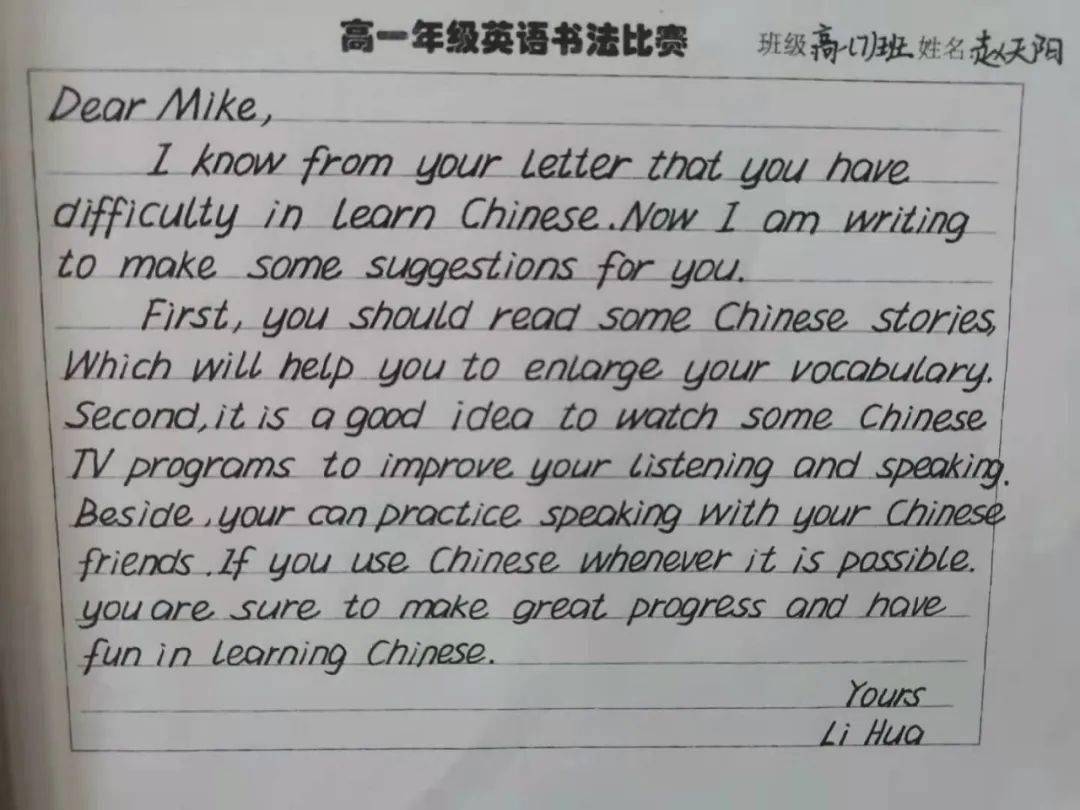 高一年级英语书法比赛
班级 高一(7)班 姓名 赵天阳
Dear Mike,
I know from your letter that you have
difficulty in learn Chinese. Now I am writing
to make some suggestions for you.
First, you should read some Chinese stories,
Which will help you to enlarge your vocabulary.
Second, it is a good idea to watch some Chinese
TV programs to improve your listening and speaking.
Beside, your can practice speaking with your Chinese
friends. If you use Chinese whenever it is possible.
you are sure to make great progress and have
fun in learning Chinese.
Yours
Li Hua